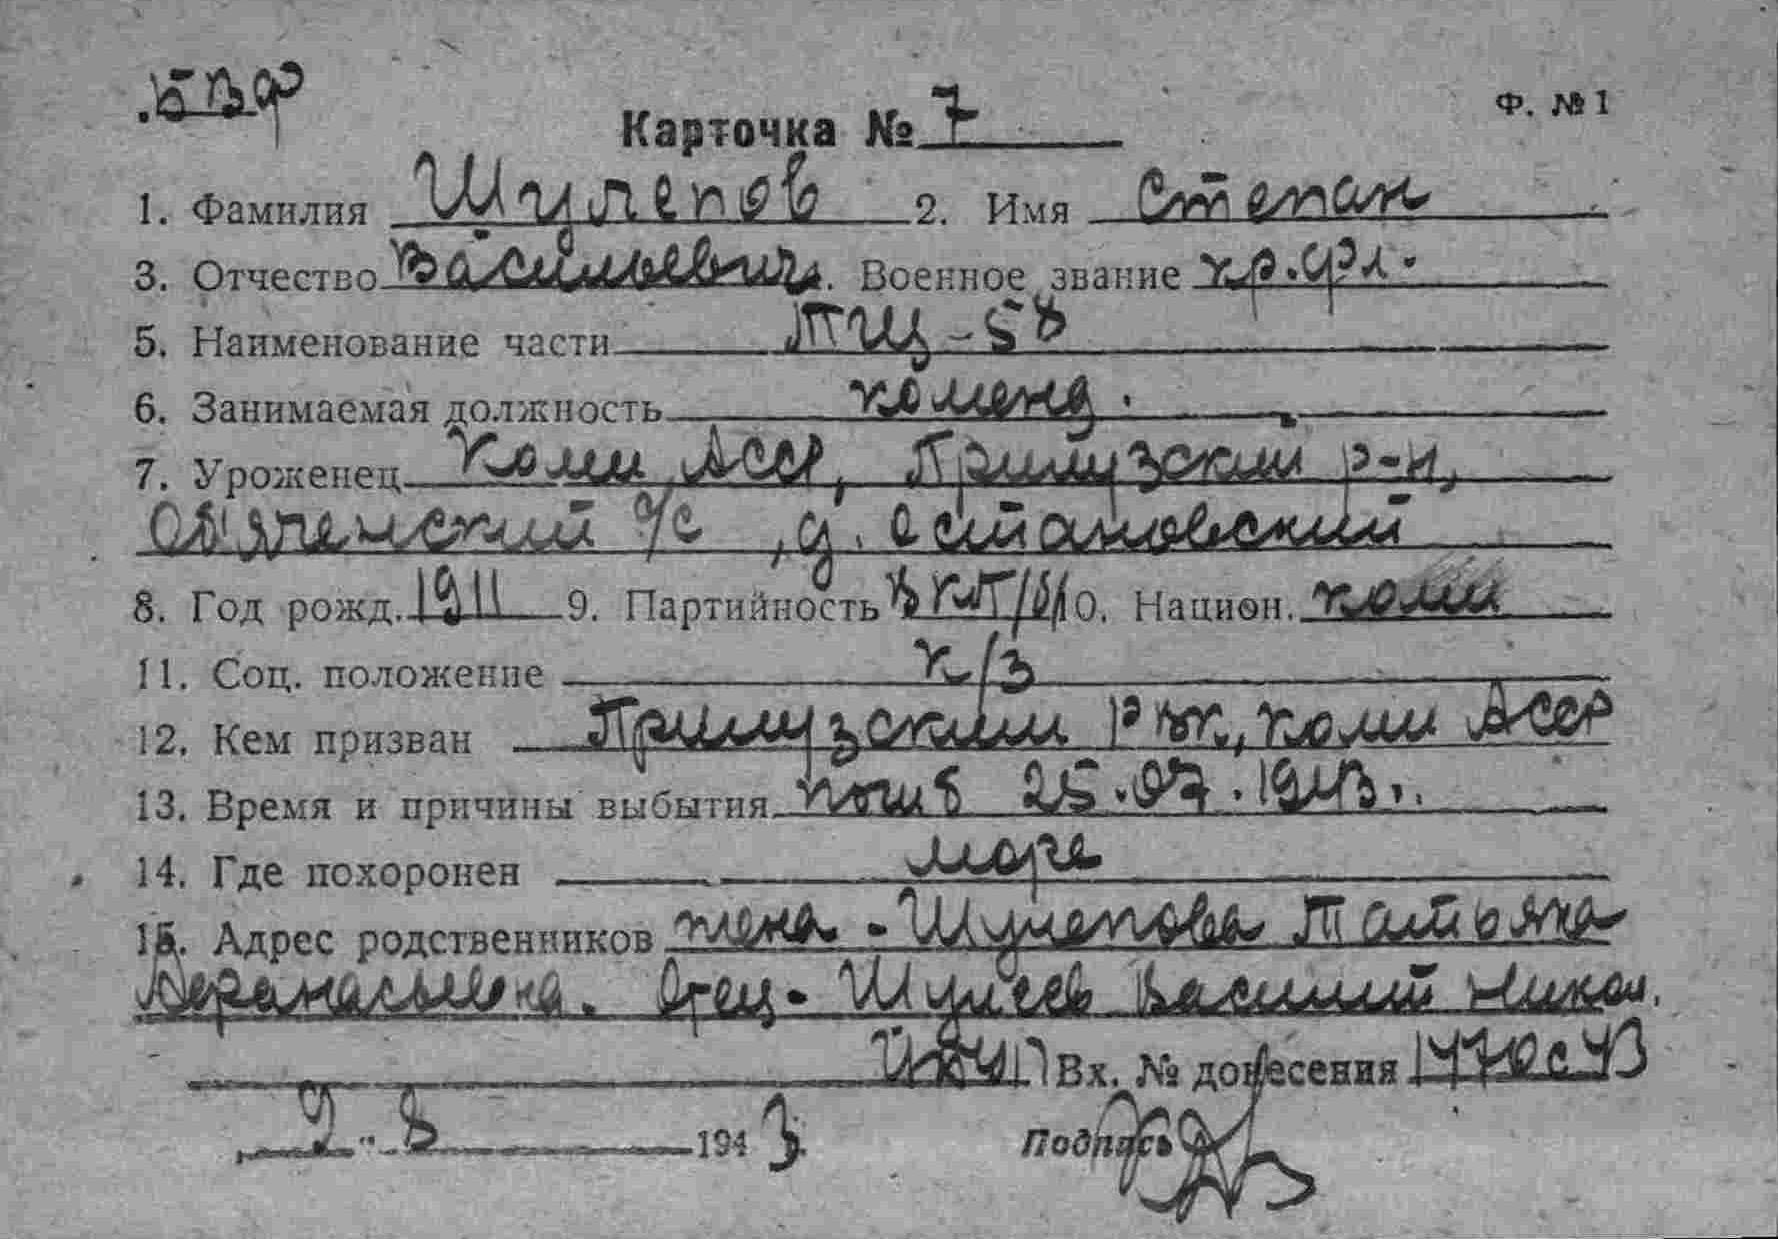 БВФ
Карточка № 7 Ф. № 1
1. Фамилия Шулепов 2. Имя Степан
3. Отчество Васильевич. Военное звание кр.фл.
5. Наименование части ТЩ-58
6. Занимаемая должность коменд.
7. Уроженец Коми АССР, Прилузский р-н,
Об'яченский с/с, д. Остановский
8. Год рожд. 1911 9. Партийность ВКП/б/ 10. Национ. коми
11. Соц. положение к/з
12. Кем призван Прилузским РВК, Коми АССР
13. Время и причины выбытия погиб 25.07.1943г.
14. Где похоронен море
15. Адрес родственников жена - Шулепова Татьяна
Афанасьевна. Отец - Шулеев Василий Никол.
Вх. № донесения 1470с 43
2 " 8 1943
Подпись